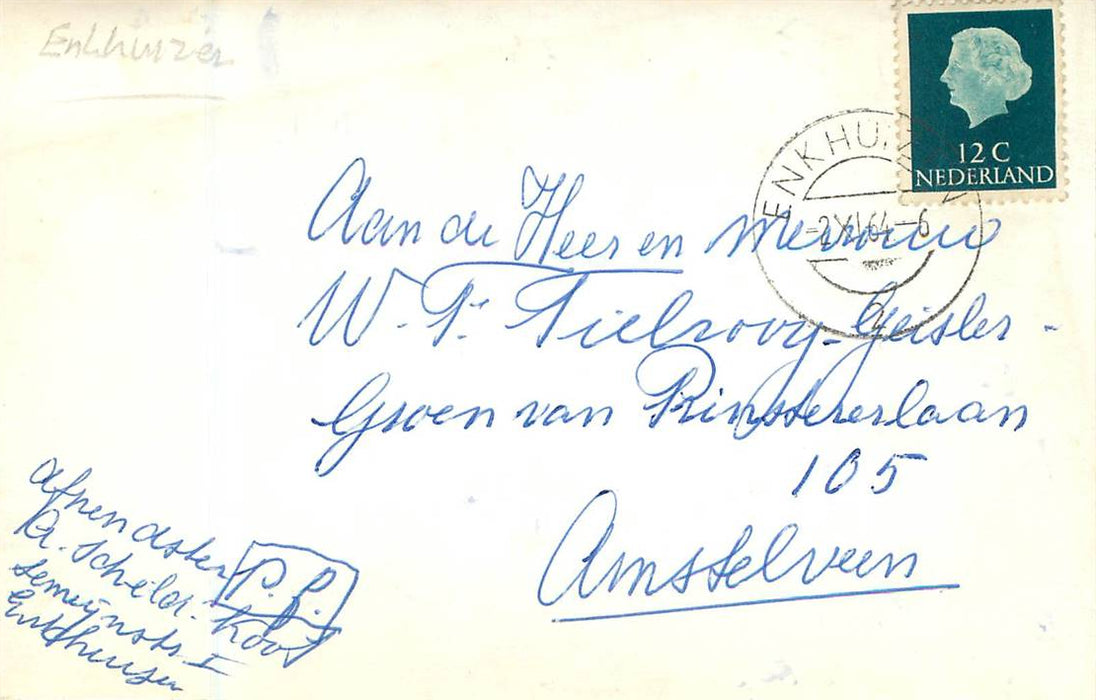 Enkhuizen
12 C
NEDERLAND
ENKHUIZEN
-2 XI.64-6
2
Aan de Heer en Mevrouw
W. P. Tielrooy-Geisler-
Groen van Prinstererlaan
105
Amstelveen
P.f.
afzendster
A. Scheldt-Koov
Semeijnstr. I
Enkhuizen